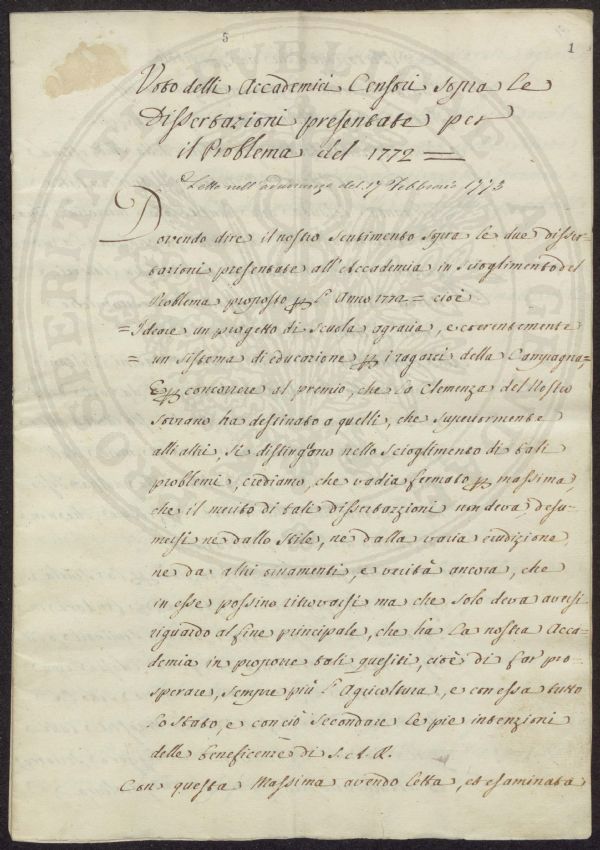 5
1
Voto delli Accademici Censori sopra le
Dissertazioni presentate per
il Problema del 1772 =
Letto nell'adunanza del 17 Febbraio 1773
Dovendo dire il nostro sentimento sopra le due disser-
tazioni presentate all'Accademia in scioglimento del
Problema proposto p l'Anno 1772 = cioè
= Ideare un progetto di scuola agraria, e coerentemente
= un sistema di educazione p i ragazzi della Campagna =
E p concorrere al premio, che la Clemenza del Nostro
Sovrano ha destinato a quelli, che superiormente
alli altri, si distinguono nello scioglimento di tali
problemi, crediamo, che vadia fermato p massima,
che il merito di tali dissertazioni non deva desu-
mersi ne dallo Stile, ne dalla varia erudizione,
ne da altri ornamenti, e varietà ancora, che
in esse possino ritrovarsi ma che solo deva aversi
riguardo al fine principale, che ha la nostra Acca=
demia in proporre tali quesiti, cioè di far pro-
sperare, sempre più l'Agricoltura, e con essa tutto
lo stato, e con ciò secondare le pie intenzioni
delle beneficenze di S.A.R.
Con questa Massima avendo letta, ed esaminata